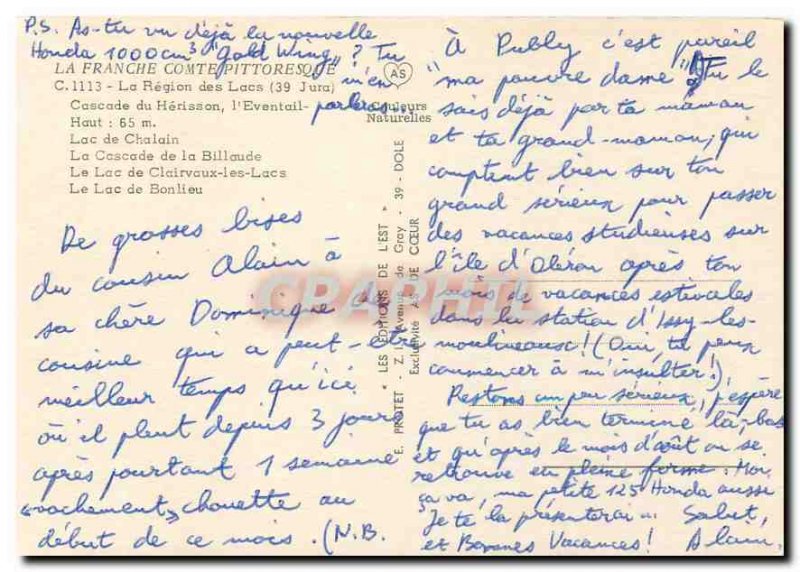 P.S. As-tu vu déjà la nouvelle
Honda 1000cm³ "Gold Wing" ? Tu
m'en
parleras...
LA FRANCHE COMTE PITTORESQUE
C.1113 - La Région des Lacs (39 Jura)
Cascade du Hérisson, l'Eventail-
Haut : 65 m.
Lac de Chalain
La Cascade de la Billaude
Le Lac de Clairvaux-les-Lacs
Le Lac de Bonlieu
AS
Couleurs
Naturelles
De grosses bises
du cousin Alain à
sa chère Dominique de
cousine qui a peut-être
meilleur temps qu'ici
où il pleut depuis 3 jours
après pourtant 1 semaine
«vachement» chouette au
début de ce mois. (N.B.
" LES EDITIONS DE L'EST "
E. PROTET - Z.I. Avenue de Gray - 39 - DOLE
Exclusivité AS DE CŒUR
CPAPHIL
À Publy c'est pareil
"ma pauvre dame"! Tu le
sais déjà par ta maman
et ta grand-maman, qui
comptent bien sur ton
grand sérieux pour passer
des vacances studieuses sur
l'île d'Oléron après ton
mois de vacances estivales
dans la station d'Issy-les-
moulineaux! (Oui, tu peux
commencer à m'insulter!)
Restons un peu sérieux, j'espère
que tu as bien terminé là-bas
et qu'après le mois d'août on se
retrouve en pleine forme. Moi
ça va, ma petite 125 Honda aussi
Je te la présenterai. Salut,
et Bonnes Vacances! Alain.